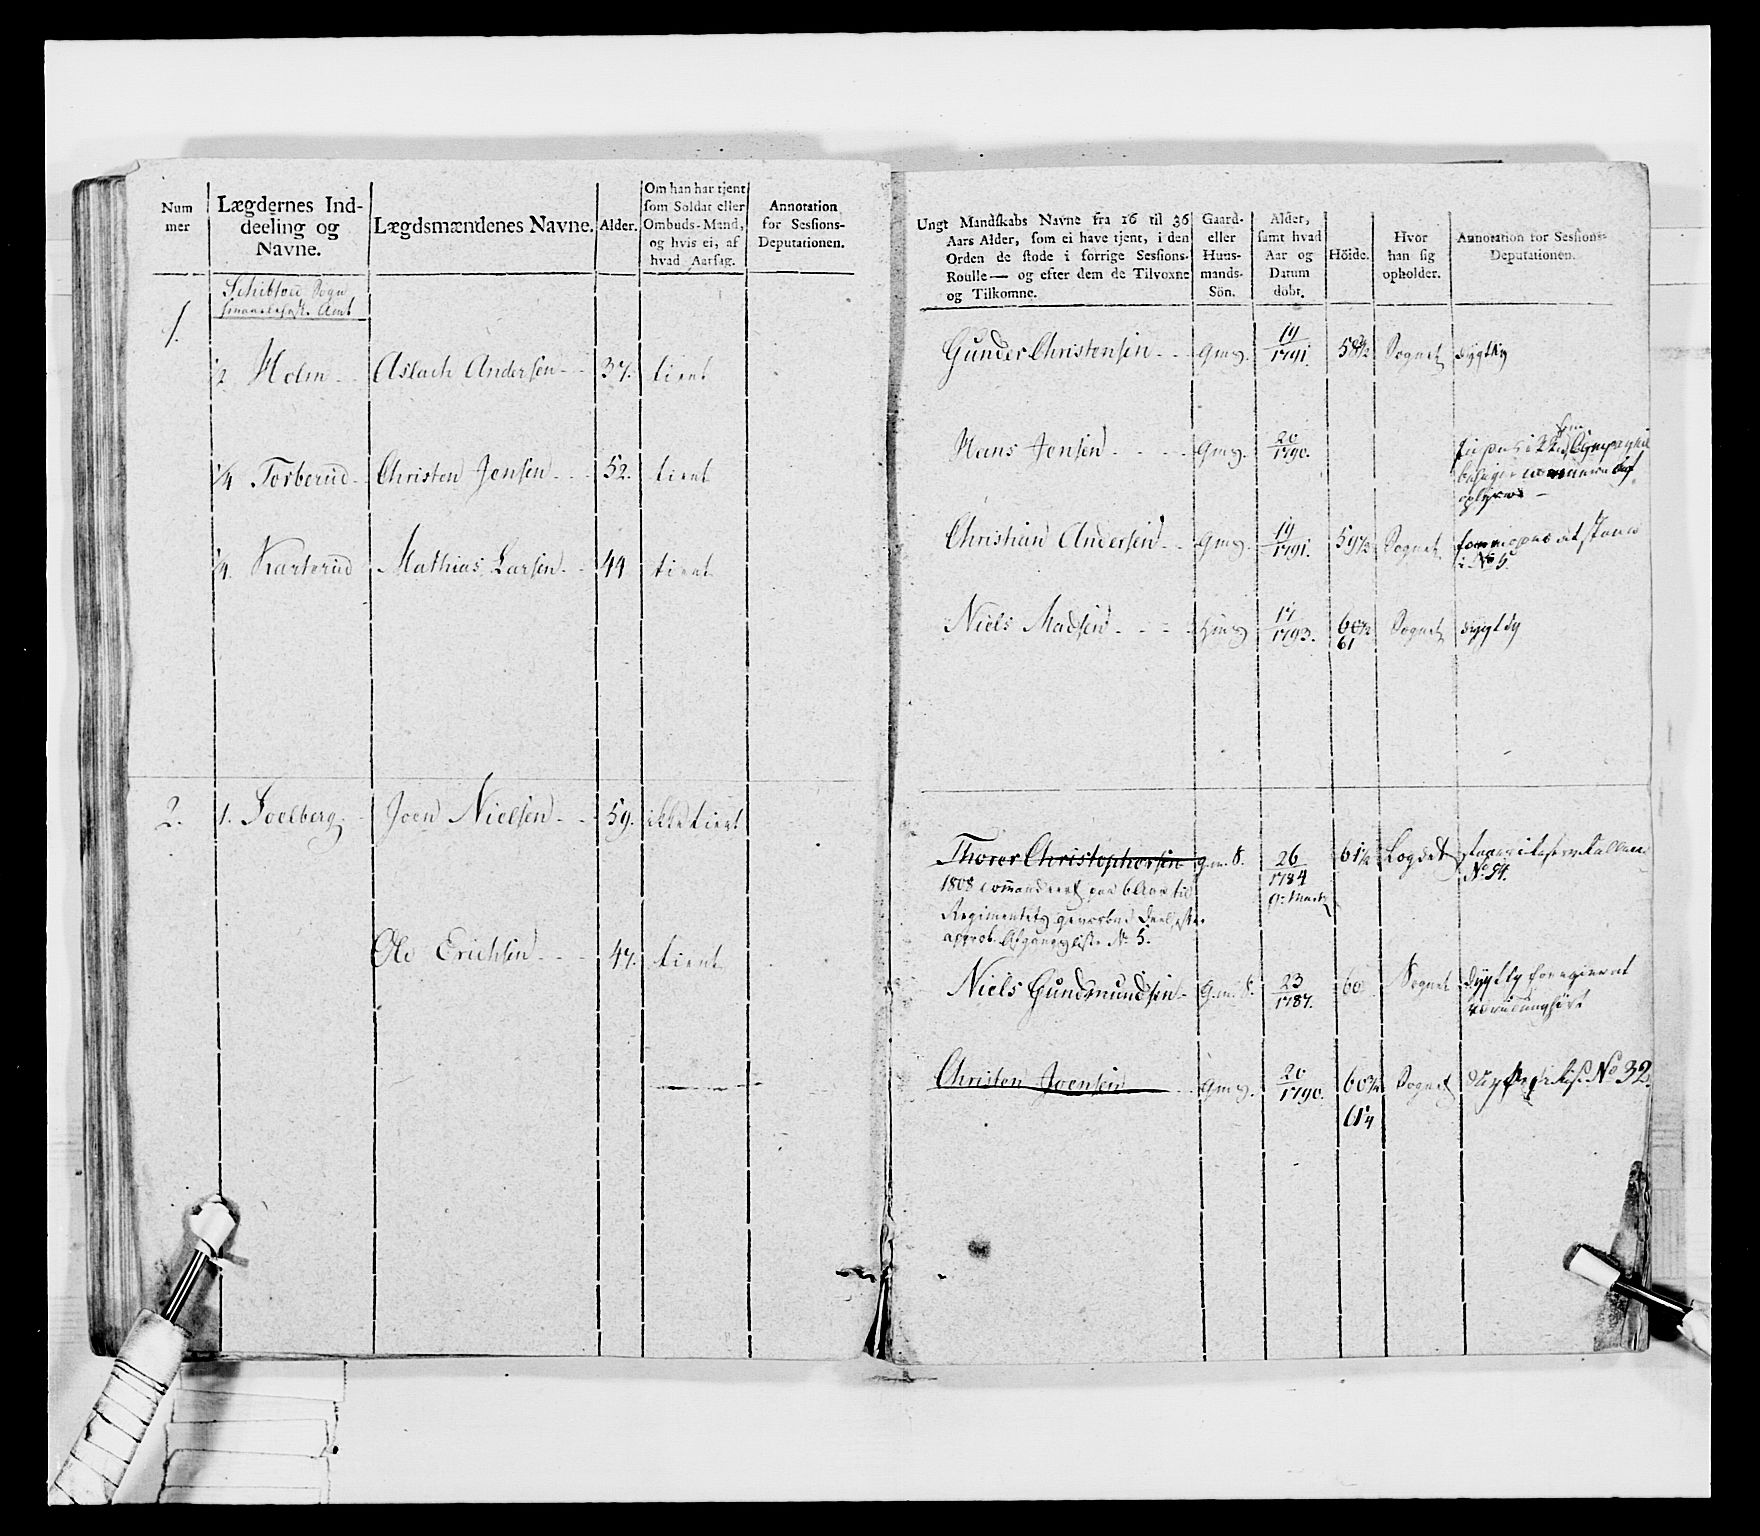 Num
mer
Lægdernes Ind-
deeling og
Navne.
Lægdsmændenes Navne.
Alder.
Om han har tjent
som Soldat eller
Ombuds-Mand,
og hvis ei, af
hvad Aarsag.
Annotation
for Sessions-
Deputationen.
Schiblou Sogn
Amt
1.
1/2 Holm Aslach Andersen 37. tient
1/4 Torberud Christen Jensen 52. tient
1/4 Karterud Mathias Larsen 44 tient
2. 1. Soelberg Joen Nielsen 59. ikke tient
Ole Erichsen 47. tient
Ungt Mandskabs Navne fra 16 til 36
Aars Alder, som ei have tjent, i den
Orden de stode i forrige Sessions-
Roulle — og efter dem de Tilvoxne
og Tilkomne.
Gaard-
eller
Huus-
mands-
Sön.
Alder,
samt hvad
Aar og
Datum
döbt.
Höide.
Hvor
han sig
opholder.
Annotation for Sessions-
Deputationen.
Gunder Christensen Gms. 19/1791. Sognet dygtig
Hans Jensen Gms. 20/1790.
Christian Andersen Gms. 19/1791. 59 1/2 Sognet
i No 5.
Niels Madsen 17/1793. 60 1/2 Sognet dygtig
61
Thorer Christophersen G.m.S. 26/1784 61 1/2 Logdet
No 54.
1808 commanderet paa 6 Aar til
Regimentets
approb. Afgangsliste No 5.
Niels Gundmundsen G.m.S. 23/1787. 60 Sognet dygtig
Christen Joensen Gms. 20/1790. 60 3/4 Sognet No 32.
61 1/4